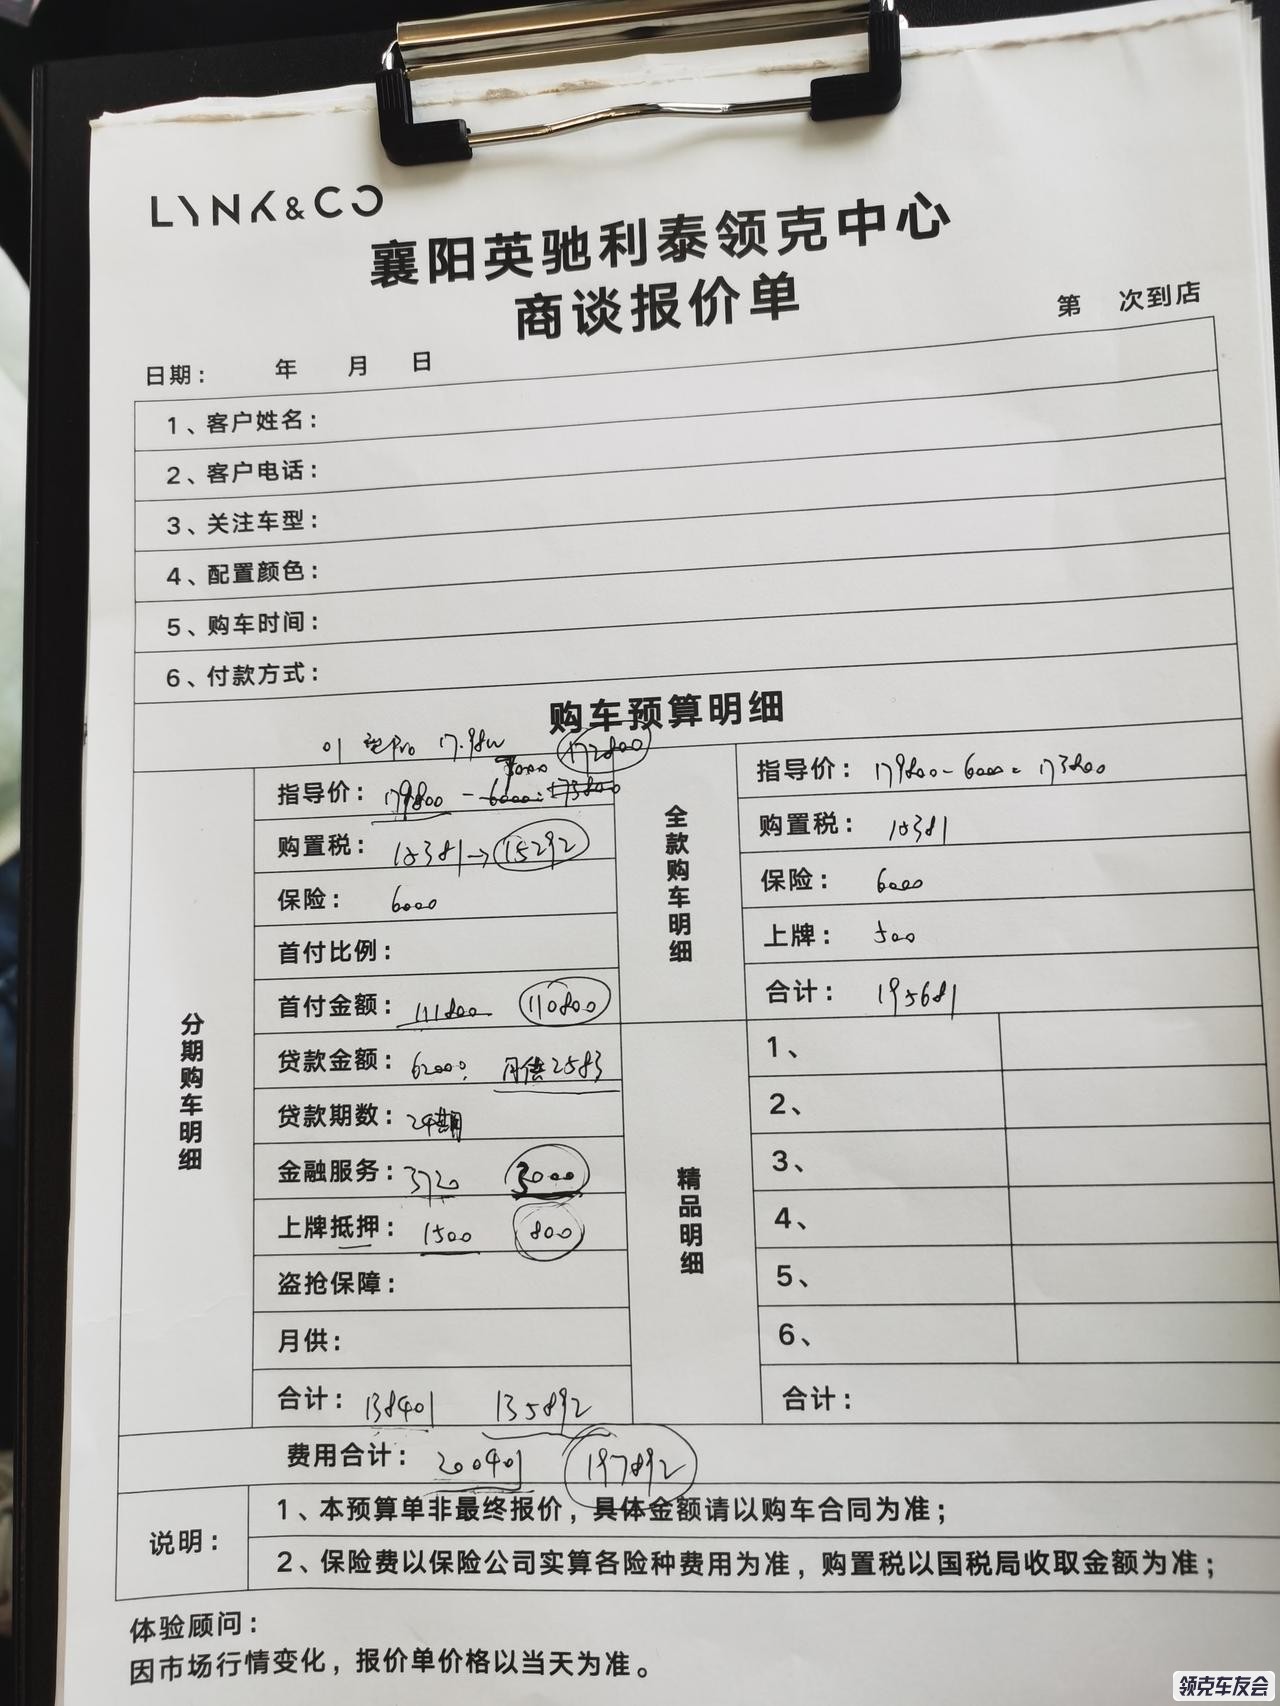 LYNK&CO
襄阳英驰利泰领克中心
商谈报价单
第 次到店
日期： 年 月 日
1、客户姓名：
2、客户电话：
3、关注车型：
4、配置颜色：
5、购车时间：
6、付款方式：
购车预算明细
01 Pro 17.98W 172800
7000
分期购车明细
指导价：179800-6000=173800
购置税：15381→15292
保险：6000
首付比例：
首付金额：111800 110800
贷款金额：62000 月供2583
贷款期数：24期
金融服务：3720 3000
上牌抵押：1500 800
盗抢保障：
月供：
合计：138401 135892
全款购车明细
指导价：179800-6000=173800
购置税：15381
保险：6000
上牌：500
合计：195681
精品明细
1、
2、
3、
4、
5、
6、
合计：
费用合计：200401 197892
说明：
1、本预算单非最终报价，具体金额请以购车合同为准；
2、保险费以保险公司实算各险种费用为准，购置税以国税局收取金额为准；
体验顾问：
因市场行情变化，报价单价格以当天为准。
领克车友会